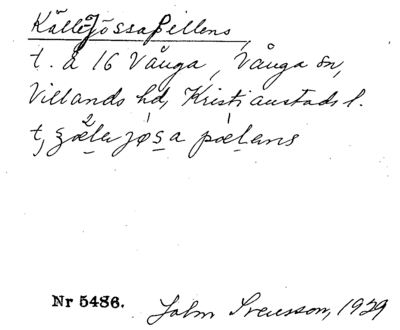 Källe Jössa Pellens,
t. å 16 Vånga, Vånga sn,
Villands hd, Kristianstads l.
jøsa pælens
Nr 5486. John Svensson, 1929